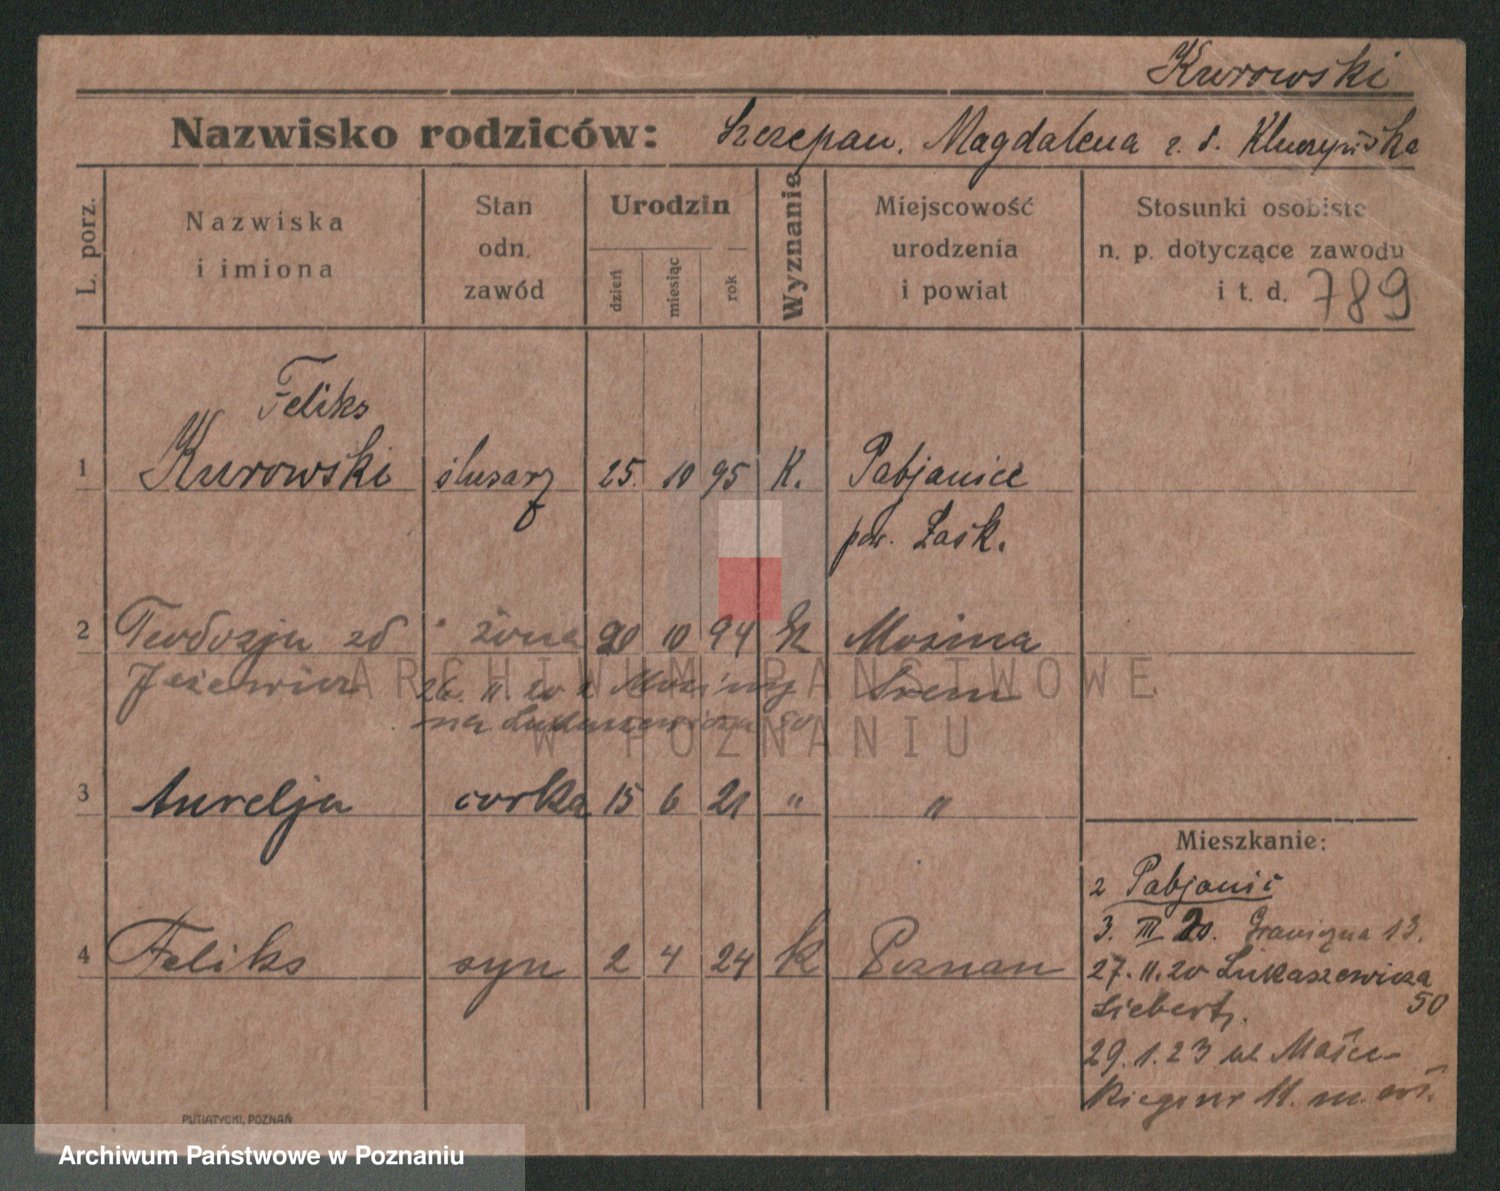 Kurowski
Nazwisko rodziców: Szczepan, Magdalena z d. Kluczyńska
L. porz.
Nazwiska
i imiona
Stan
odn.
zawód
Urodzin
dzień
miesiąc
rok
Wyznanie
Miejscowość
urodzenia
i powiat
Stosunki osobiste
n. p. dotyczące zawodu
i t. d. 789
Feliks
1 Kurowski ślusarz 25. 10 95 K. Pabjanice
pow. Łask.
2 Teodozja zd żona 20 10 94 K Mosina
Jażewicz 26. 11. 20 z Mosiny Śrem
na Łukaszewicza 50
3 Aurelja córka 15 6 21 " "
4 Feliks syn 2 4 24 K Poznan
Mieszkanie:
z Pabjanic
3. III 20. Graniczna 13.
27. 11. 20 Łukaszewicza
50
Siebert.
29. 1. 23 ul
11. m.
PUTIATYCKI, POZNAŃ
ARCHIWUM PAŃSTWOWE
W POZNANIU
Archiwum Państwowe w Poznaniu